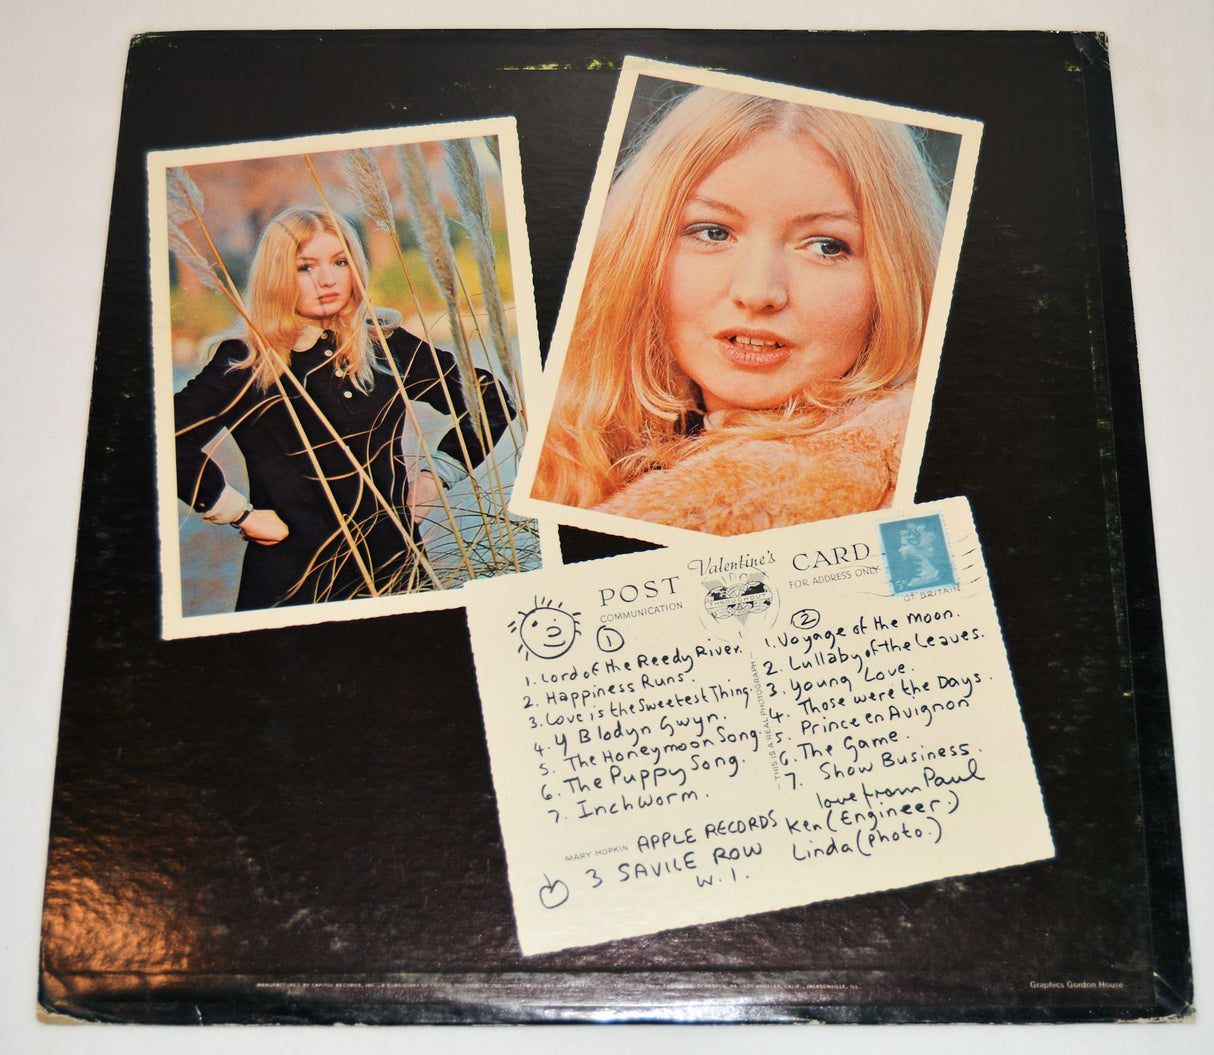 POST
Valentine's
CARD
COMMUNICATION
THROUGHOUT
FOR ADDRESS ONLY
GT BRITAIN
1
1. Lord of the Reedy River.
2. Happiness Runs.
3. Love is the Sweetest Thing.
4. Y Blodyn Gwyn.
5. The Honeymoon Song.
6. The Puppy Song.
7. Inchworm.
THIS IS A REAL PHOTOGRAPH
2
1. Voyage of the Moon.
2. Lullaby of the Leaves.
3. Young Love.
4. Those were the Days.
5. Prince en Avignon
6. The Game.
7. Show Business.
love from Paul
Ken (Engineer.)
Linda (photo.)
MARY HOPKIN
APPLE RECORDS
3 SAVILE ROW
W.1.
MANUFACTURED BY CAPITOL RECORDS, INC.,
JACKSONVILLE, ILL.
Graphics Gordon House